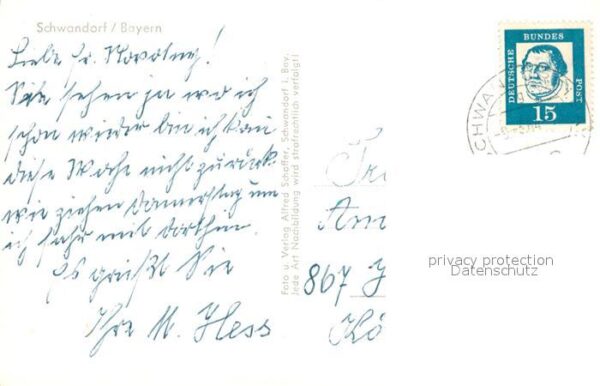 Schwandorf / Bayern
Liebe Fr. Nowotny!
Sie sehen ja wo ich
schon wieder bin ich kan
diese Woche nicht zurück.
wir ziehen Donnerstag um
ich fahr mit dorthin.
Es grüßt Sie
Ihre M. Hess
Foto u. Verlag Alfred Schaffer, Schwandorf i. Bay.
Jede Art Nachbildung wird strafrechtlich verfolgt!
DEUTSCHE BUNDES POST
15
867
Kö
privacy protection
Datenschutz